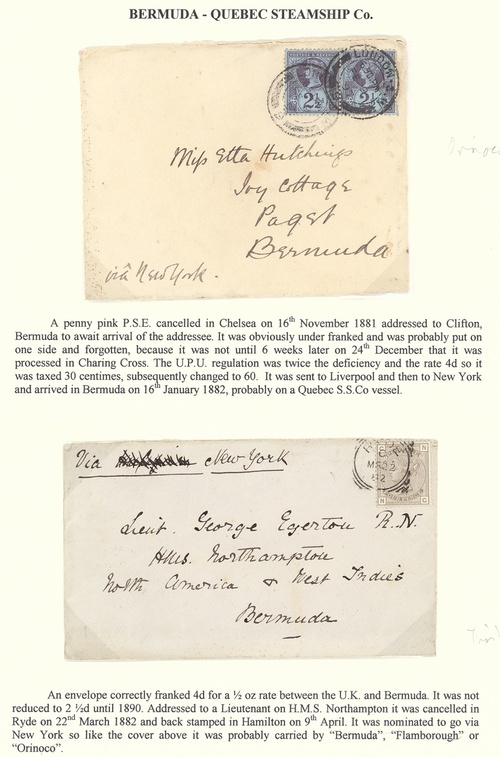 BERMUDA - QUEBEC STEAMSHIP Co.
2½ 2½
LONDON
Miss Etta Hutchings
Ivy Cottage
Paget
Bermuda
via New York.
A penny pink P.S.E. cancelled in Chelsea on 16th November 1881 addressed to Clifton,
Bermuda to await arrival of the addressee. It was obviously under franked and was probably put on
one side and forgotten, because it was not until 6 weeks later on 24th December that it was
processed in Charing Cross. The U.P.U. regulation was twice the deficiency and the rate 4d so it
was taxed 30 centimes, subsequently changed to 60. It was sent to Liverpool and then to New York
and arrived in Bermuda on 16th January 1882, probably on a Quebec S.S.Co vessel.
Via New York
C
MR 22
82
N C
Lieut. George Egerton R.N.
HMS. Northampton
North America & West Indies
Bermuda
An envelope correctly franked 4d for a ½ oz rate between the U.K. and Bermuda. It was not
reduced to 2 ½d until 1890. Addressed to a Lieutenant on H.M.S. Northampton it was cancelled in
Ryde on 22nd March 1882 and back stamped in Hamilton on 9th April. It was nominated to go via
New York so like the cover above it was probably carried by "Bermuda", "Flamborough" or
"Orinoco".